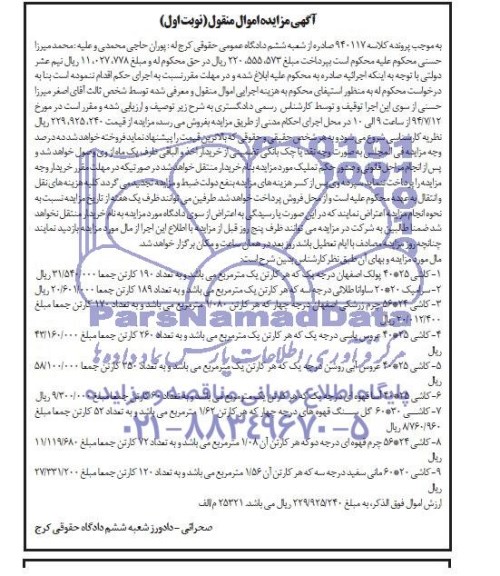 آگهی مزایده اموال منقول (نوبت اول)
به موجب پرونده کلاسه ۹۴۰۱۱۷ صادره از شعبه ششم دادگاه عمومی حقوقی کرج له : پوران حاجی محمدی و علیه : محمد میرزا
حسنی محکوم علیه محکوم است بپرداخت مبلغ ۲۲۰,۵۵۵,۵۷۳ ریال در حق محکوم له و مبلغ ۱۱,۰۲۷,۷۷۸ ریال نیم عشر
دولتی با توجه به اینکه اجرائیه صادره به محکوم علیه ابلاغ شده و در مهلت مقرر نسبت به اجرای حکم اقدام ننموده است بنا به
درخواست محکوم له به منظور استیفای محکوم به هزینه اجرایی اموال منقول و معرفی شده توسط شخص ثالث آقای اصغر میرزا
حسنی از سوی این اجرا توقیف و توسط کارشناس رسمی دادگستری به شرح زیر توصیف و ارزیابی شده و مقرر است در مورخ
۹۴/۷/۱۲ از ساعت ۹ الی ۱۰ در محل اجرای احکام مدنی از طریق مزایده بفروش می رسد، مزایده از قیمت ۲۲۹,۹۲۵,۲۴۰ ریال
نظریه کارشناسی شروع می شود و به هر شخص حقیقی و حقوقی که بالاترین قیمت را پیشنهاد نماید فروخته خواهد شد، ده درصد
وجه مزایده فی المجلس به صورت وجه نقد یا چک بانکی تضمینی از خریدار اخذ و الباقی ظرف یک ماه از وی وصول خواهد شد و
پس از انجام مراحل قانونی و صدور حکم تملیک مورد مزایده بنام خریدار منتقل خواهد شد در صورتیکه در مهلت مقرر خریدار وجه
مزایده را پرداخت ننماید سپرده وی پس از کسر هزینه های مزایده بنفع دولت ضبط و مزایده تجدید می گردد کلیه هزینه های نقل
و انتقال به عهده محکوم علیه است و از محل فروش پرداخت خواهد شد. طرفین می توانند ظرف یک هفته از تاریخ مزایده نسبت به
نحوه انجام مزایده اعتراض نمایند که در این صورت تا رسیدگی به اعتراض از سوی دادگاه مورد مزایده به نام خریدار منتقل نخواهد
شد ضمنا طالبین به شرکت در مزایده می توانند ظرف پنج روز قبل از مزایده با اطلاع این اجرا از مال مورد مزایده بازدید نمایند
چنانچه روز مزایده مصادف با ایام تعطیل باشد روز بعد در همان ساعت و مکان برگزار خواهد شد.
مال مورد مزایده و بهای آن طبق نظر کارشناس بدین شرح است:
۱- کاشی ۲۵*۴۰ پولک اصفهان درجه یک که هر کارتن یک مترمربع می باشد و به تعداد ۱۹۰ کارتن جمعا ۳۱/۵۴۰/۰۰۰ ریال
۲- سرامیک ۲۰*۲۰ ساوانا طلائی درجه سه که هر کارتن یک مترمربع می باشد و به تعداد ۱۸۹ کارتن جمعا ۲۰/۶۰۱/۰۰۰ ریال
۳- کاشی ۲۴*۵۶ چرم زرشکی اصفهان درجه چهار که هر کارتن ۱/۰۸۰ مترمربع می باشد و به تعداد ۱۷۰ کارتن جمعا مبلغ
۲۰/۰۱۲/۴۰۰ ریال
۴- کاشی ۲۵*۴۰ عروس یاسی درجه یک که هر کارتن یک مترمربع می باشد و به تعداد ۲۶۰ کارتن جمعا مبلغ ۴۳/۱۶۰/۰۰۰
ریال
۵- کاشی ۲۵*۴۰ عروس آبی درجه یک که هر کارتن یک مترمربع می باشد و به تعداد ۳۵۰ کارتن جمعا ۵۸/۱۰۰/۰۰۰
ریال
۶- کاشی ۲۰* قهوه ای درجه یک که هر کارتن یک مترمربع می باشد و به تعداد ۶۰ کارتن جمعا مبلغ ۹/۳۰۰/۰۰۰ ریال
۷- کاشی ۳۰*۶۰ گل سنگ قهوه های درجه چهار که هر کارتن ۱/۶۲ مترمربع می باشد و به تعداد ۵۲ کارتن جمعا مبلغ
۸/۷۶۰/۹۶۰ ریال
۸- کاشی ۲۴*۵۶ چرم قهوه ای درجه دو که هر کارتن آن ۱/۰۸ مترمربع می باشد و به تعداد ۷۲ کارتن جمعا مبلغ ۱۱/۱۱۹/۶۸۰
ریال
۹- کاشی ۲۰*۶۰ مانی سفید درجه سه که هر کارتن آن ۱/۵۶ مترمربع می باشد و به تعداد ۱۲۰ کارتن جمعا مبلغ ۲۷/۳۳۱/۲۰۰
ریال
ارزش اموال فوق الذکر، به مبلغ ۲۲۹/۹۲۵/۲۴۰ ریال می باشد. ۲۵۳۲۱ م/الف
صحرائی - دادورز شعبه ششم دادگاه حقوقی کرج
ParsNamadData
مرکز فرآوری اطلاعات پارس نماد داده ها
پایگاه اطلاع رسانی مناقصه و مزایده
۰۲۱-۸۸۳۴۹۶۷۰-۵